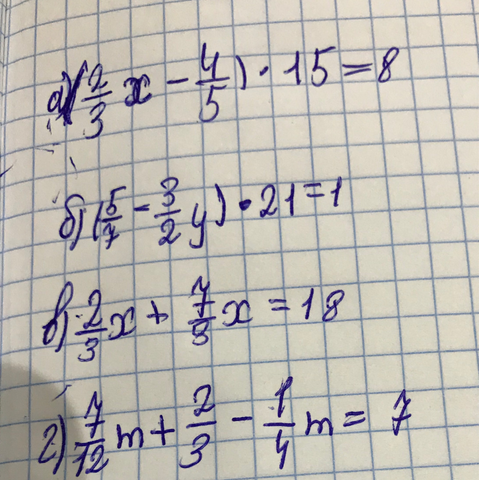 а) (2/3 x - 4/5) · 15 = 8
б) (5/7 - 3/2 y) · 21 = 1
в) 2/3 x + 7/9 x = 18
г) 7/12 m + 2/3 - 1/4 m = 7